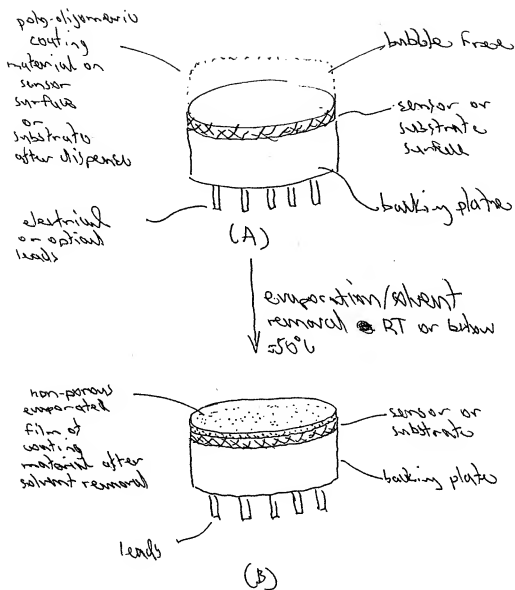 poly-oligomeric
coating
material on
sensor
surface
or
substrate
after dispense
bubble free
sensor or
substrate
surface
backing plate
electrical
or optical
leads
(A)
evaporation/solvent
removal RT or below
50°C
non-porous
evaporated
film of
coating
material after
solvent removal
sensor or
substrate
backing plate
leads
(B)